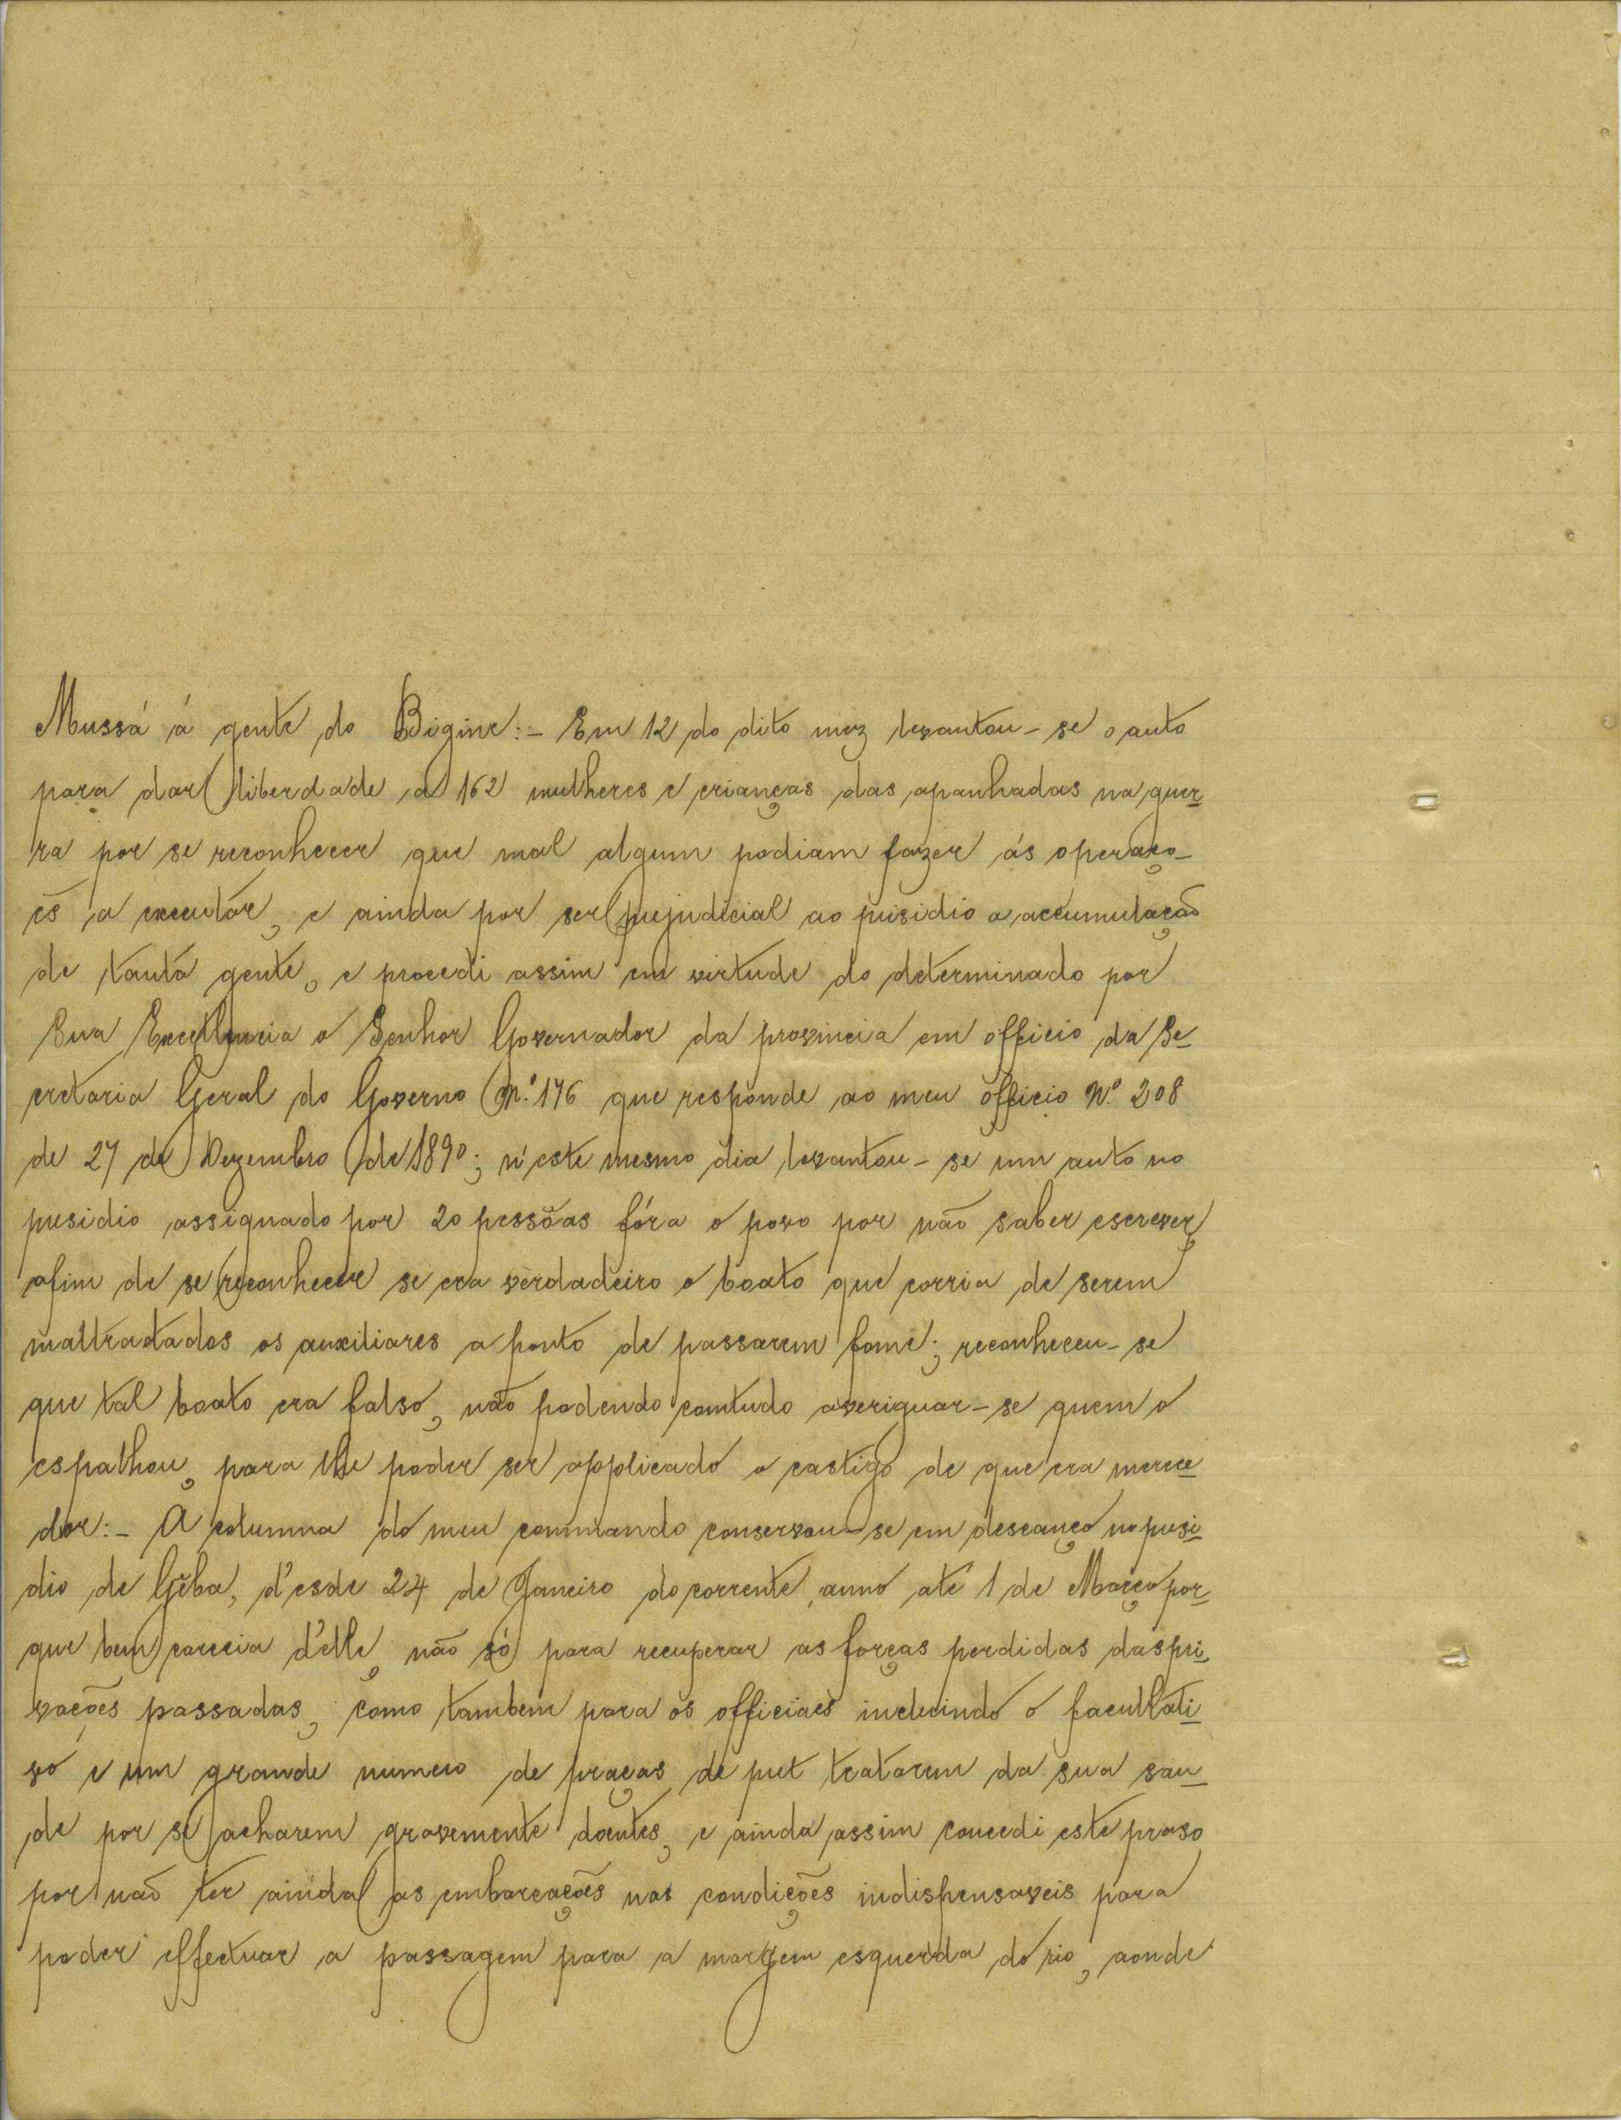 Mussá á gente do Bigine:- Em 12 do dito mez levantou-se o auto
para dar liberdade a 162 mulheres e crianças das apanhadas na guer-
ra por se reconhecer que mal algum podiam fazer ás operaço-
ẽs a executar, e ainda por ser prejudicial ao presidio a accumulação
de tanta gente, e procedi assim em virtude do determinado por
Sua Excellencia o Senhor Governador da provincia em officio da Se-
cretaria Geral do Governo N.º 176 que responde ao meu officio Nº 208
de 27 de Dezembro de 1890; n'este mesmo dia levantou-se um auto no
presidio assignado por 20 pessõas fóra o povo por não saber escrever,
afim de se reconhecer se era verdadeiro o boato que corria de serem
maltradados os auxiliares a ponto de passarem fome; reconheceu-se
que tal boato era falso, não podendo comtudo averiguar-se quem o
espalhou, para lhe poder ser applicado o castigo de que era merece-
dor:- A columna do meu commando conservou-se em descanço no presi-
dio de Gêba, d'esde 24 de Janeiro do corrente anno até 1 de Março por-
que bem carecia d'elle, não só para recuperar as forças perdidas das pri-
vações passadas, como tambem para os officiaes incluindo o facultati-
vo e um grande numero de praças de pret tratarem da sua sau-
de por se acharem gravemente doentes, e ainda assim concedi este praso
por não ter ainda as embarcações nas condições indispensaveis para
poder effectuar a passagem para a margem esquerda do rio, aonde